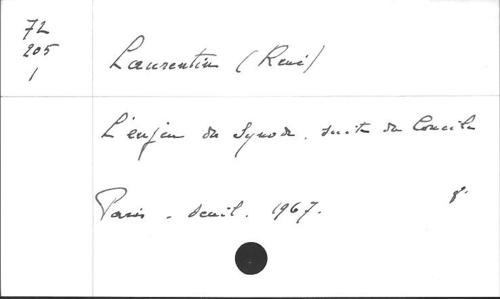 72
205
1
Laurentin (René)
L'enjeu du Synode. suite du Concile
Paris. Seuil. 1967. 8°